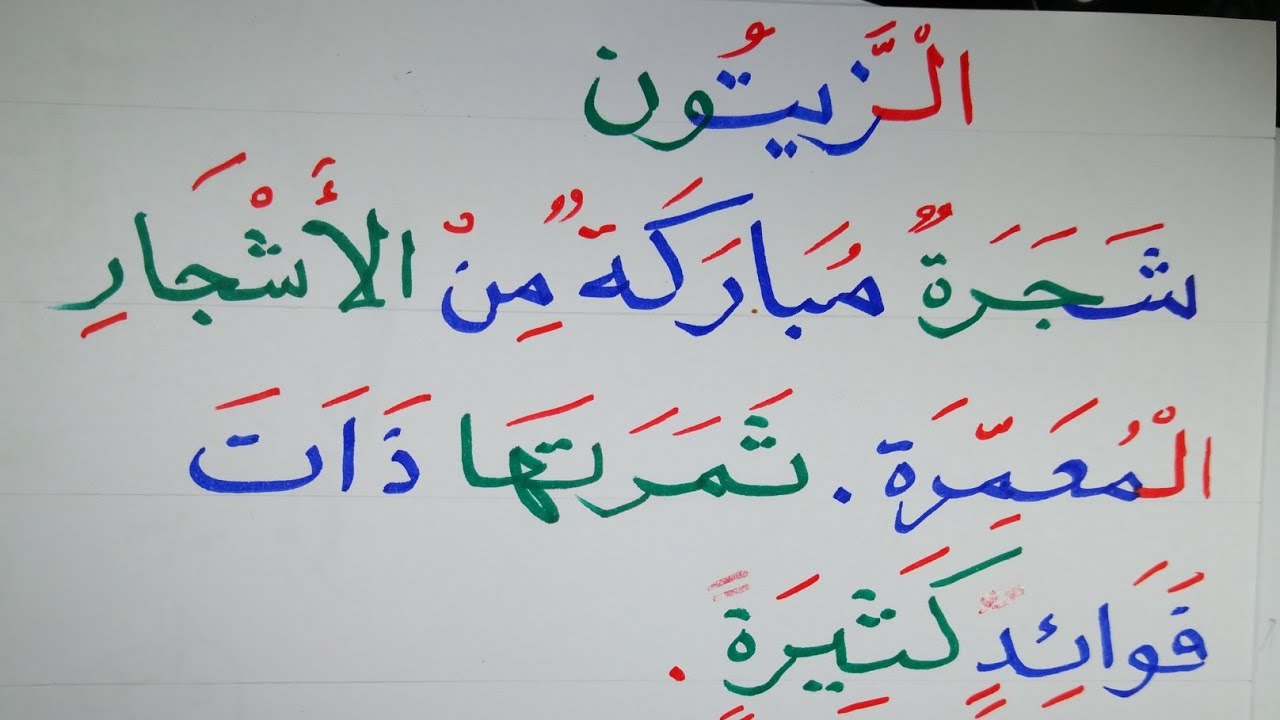 الْزَّيتُون
شَجَرَةٌ مُبارَكَةٌ مِنْ الأَشْجَارِ
الْمُعَمِّرَة . ثَمَرَتهَا ذَاتَ
فَوَائِدٍ كَثِيرَةٍ .